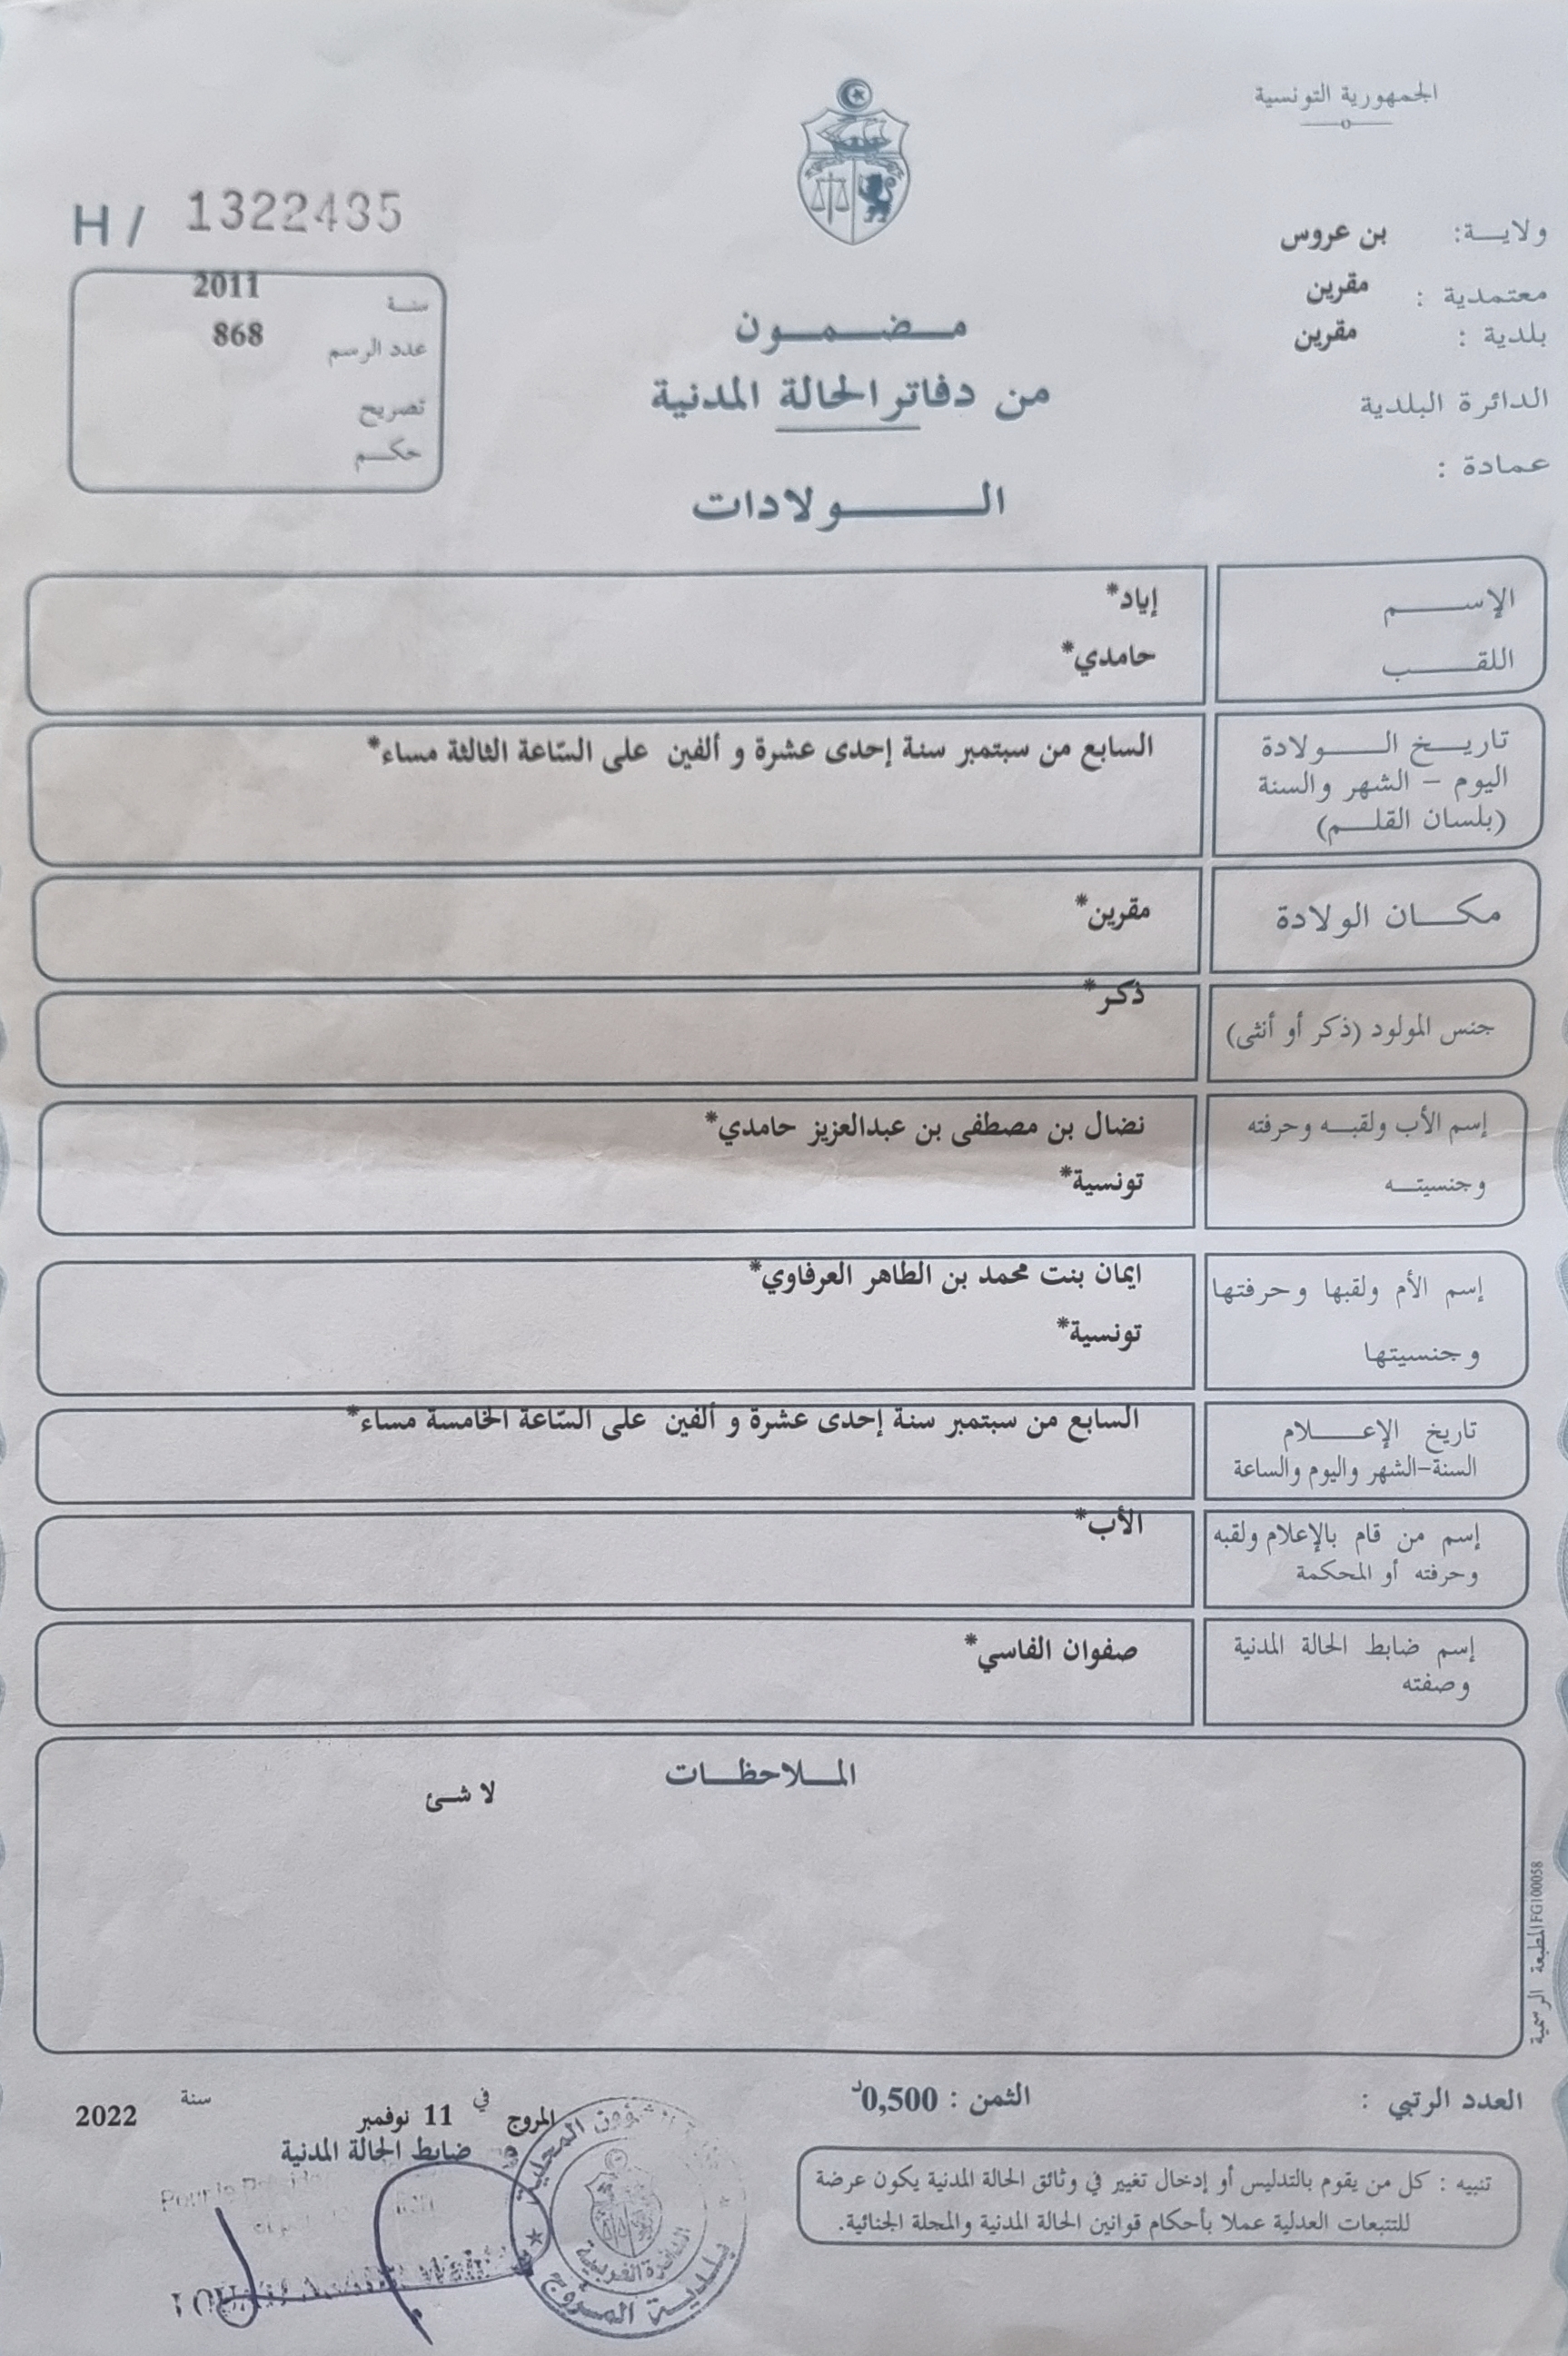 الجمهورية التونسية
ولايــة: بن عروس
معتمدية : مقرين
بلدية : مقرين
الدائرة البلدية
عمادة :
H / 1322435
سنة 2011
عدد الرسم 868
تصريح
حكم
مضمون
من دفاتر الحالة المدنية
الــولادات
الإســم إياد*
اللقــب حامدي*
تاريخ الــولادة السابع من سبتمبر سنة إحدى عشرة و ألفين على السّاعة الثالثة مساء*
اليوم – الشهر والسنة
(بلسان القلــم)
مكــان الولادة مقرين*
جنس المولود (ذكر أو أنثى) ذكر*
إسم الأب ولقبــه وحرفته نضال بن مصطفى بن عبدالعزيز حامدي*
وجنسيتــه تونسية*
إسم الأم ولقبها وحرفتها ايمان بنت محمد بن الطاهر العرفاوي*
وجنسيتها تونسية*
تاريخ الإعــلام السابع من سبتمبر سنة إحدى عشرة و ألفين على السّاعة الخامسة مساء*
السنة-الشهر واليوم والساعة
إسم من قام بالإعلام ولقبه الأب*
وحرفته أو المحكمة
إسم ضابط الحالة المدنية صفوان الفاسي*
وصفته
المــلاحظــات
لا شئ
المطبعة الرسمية FG100058
العدد الرتبي :
الثمن : 0,500د
المروج في 11 نوفمبر سنة 2022
ضابط الحالة المدنية
تنبيه : كل من يقوم بالتدليس أو إدخال تغيير في وثائق الحالة المدنية يكون عرضة
للتتبعات العدلية عملا بأحكام قوانين الحالة المدنية والمجلة الجنائية.
الشؤون المحلية
الدائرة الغربية
بلدية المروج